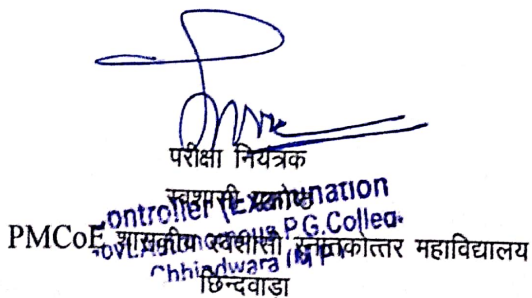 परीक्षा नियंत्रक
स्वशासी प्रकोष्ठ
Controller (Examination
PMCoE शासकीय स्वशासी स्नातकोत्तर महाविद्यालय
Govt. Autonomous P.G. College
Chhindwara (M.P.)
छिन्दवाडा